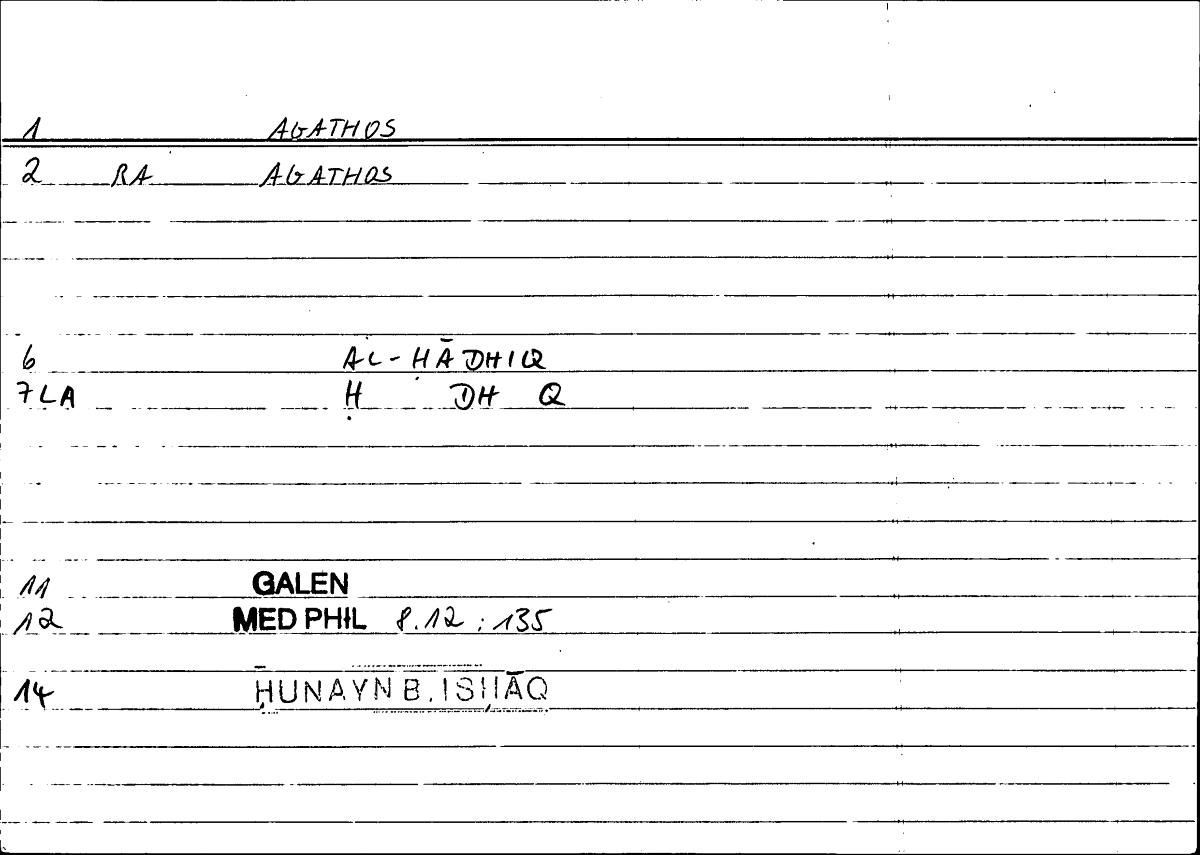 1 AGATHOS
2 RA AGATHOS
6 AL-ḤĀDHIQ
7LA Ḥ DH Q
11 GALEN
12 MED PHIL 8.12 : 135
14 ḤUNAYN B. ISḤĀQ